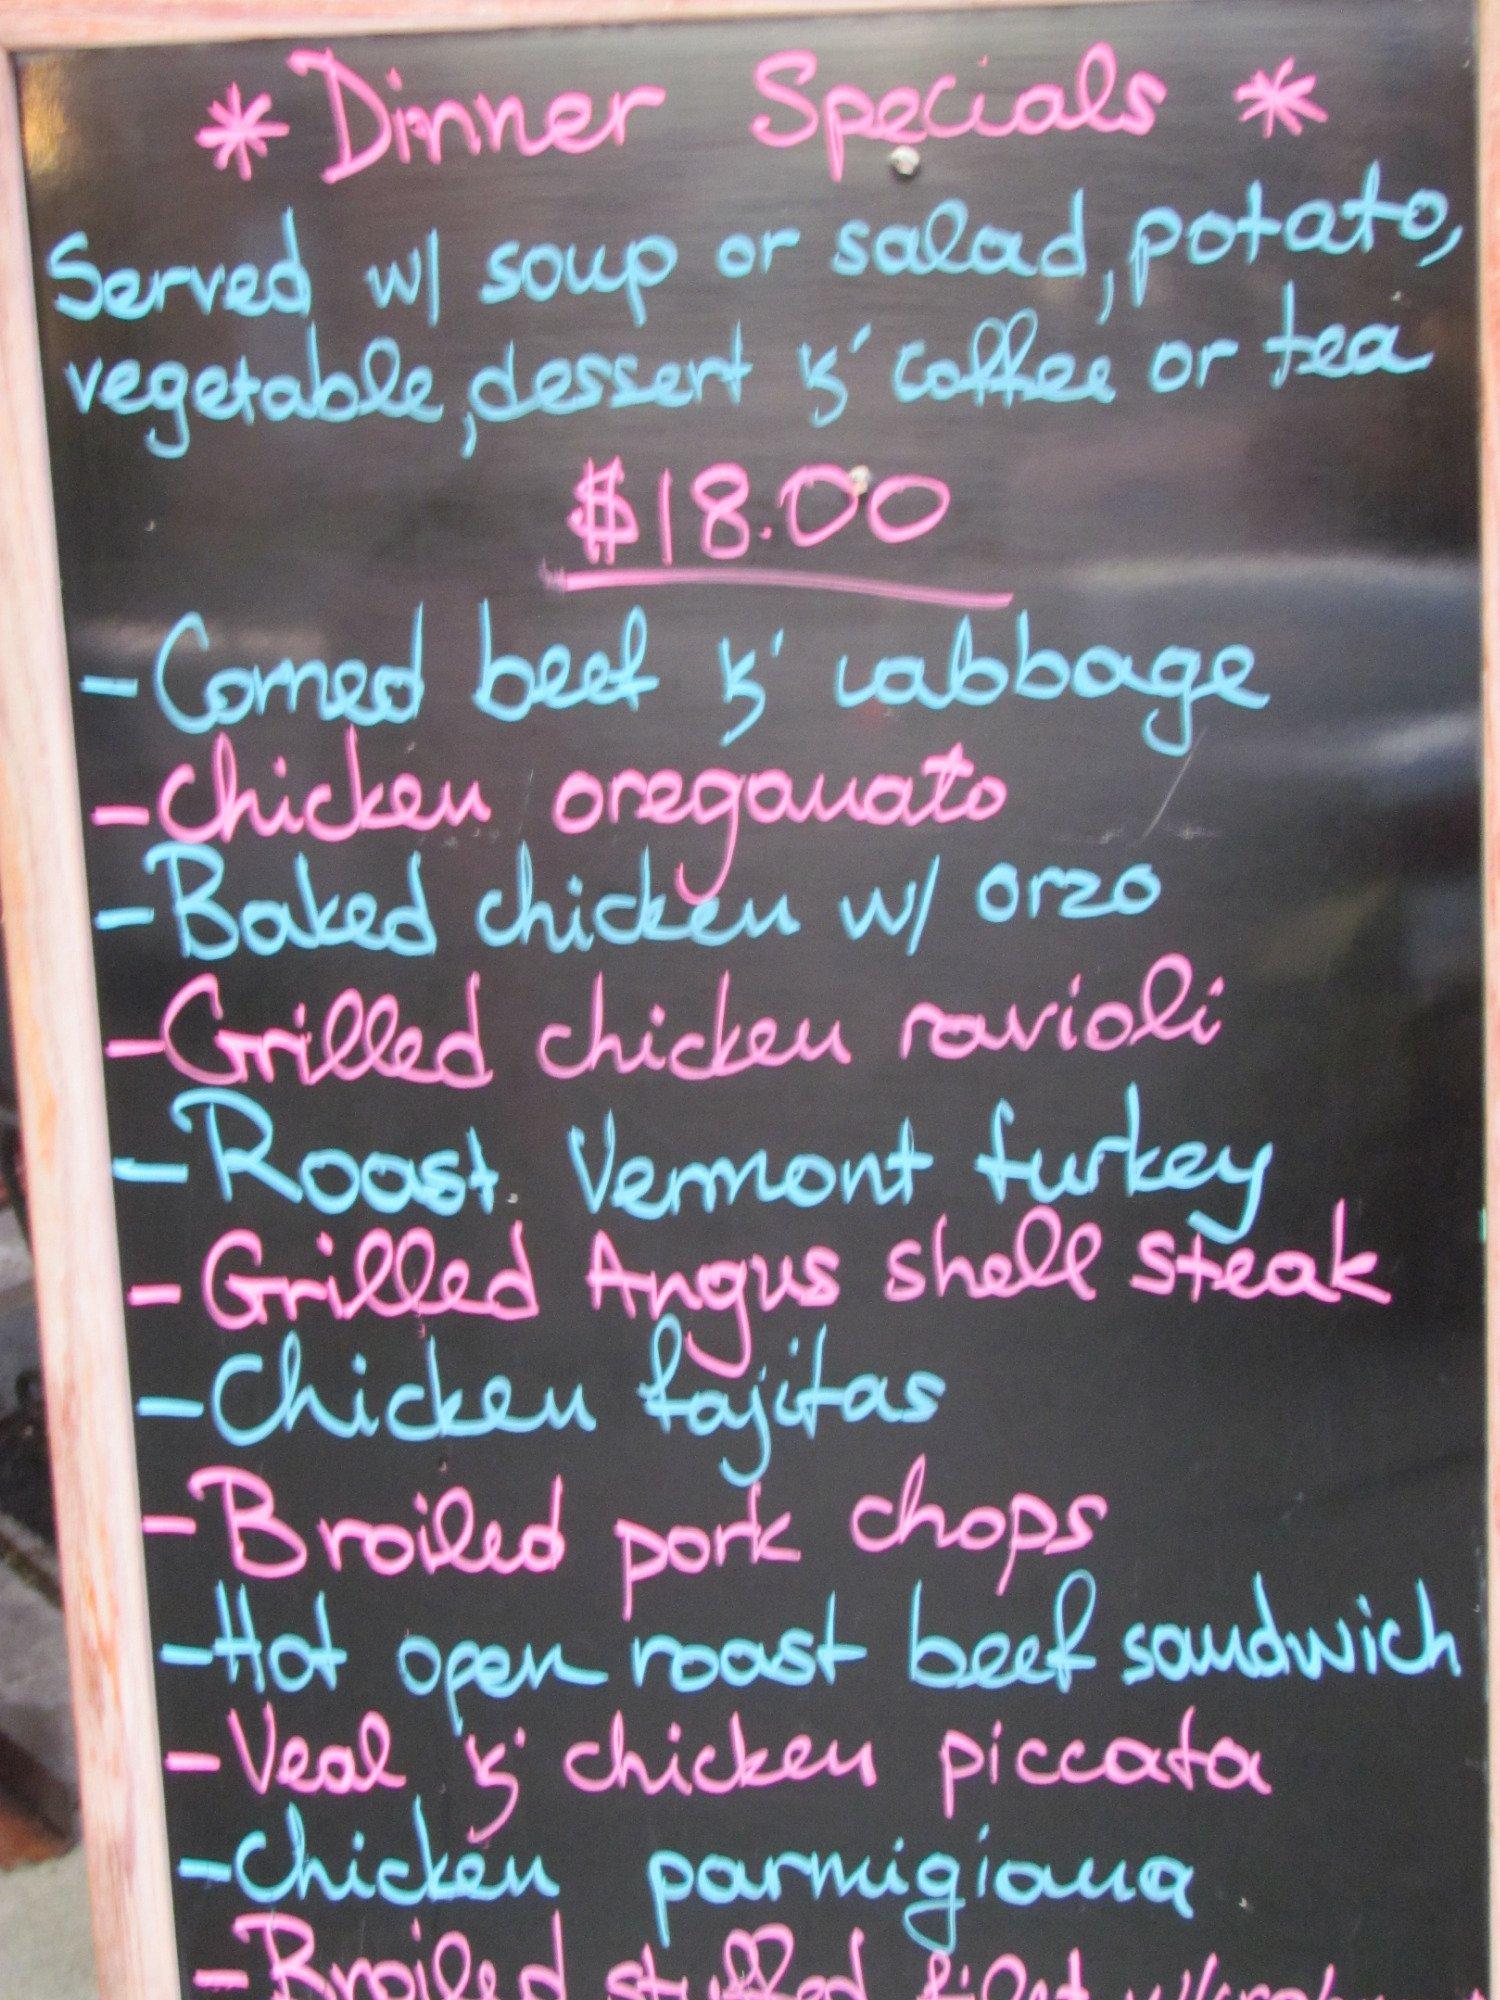 * Dinner Specials *
Served w/ soup or salad, potato,
vegetable, dessert & coffee or tea
$18.00
- Corned beef & cabbage
- Chicken oreganato
- Baked chicken w/ orzo
- Grilled chicken ravioli
- Roast Vermont turkey
- Grilled Angus shell steak
- Chicken fajitas
- Broiled pork chops
- Hot open roast beef sandwich
- Veal & chicken piccata
- Chicken parmigiana
- Broiled stuffed filet w/